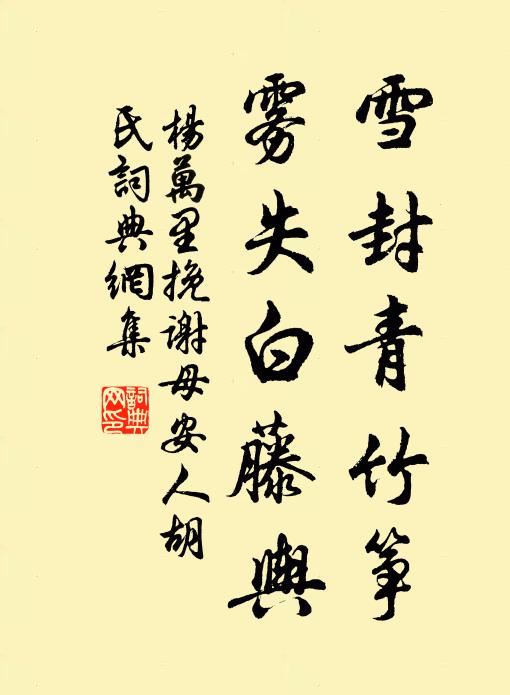 雪封青竹筝
雾失白藤舆
杨萬里挽谢母安人胡
氏詞典網集
詞典网印